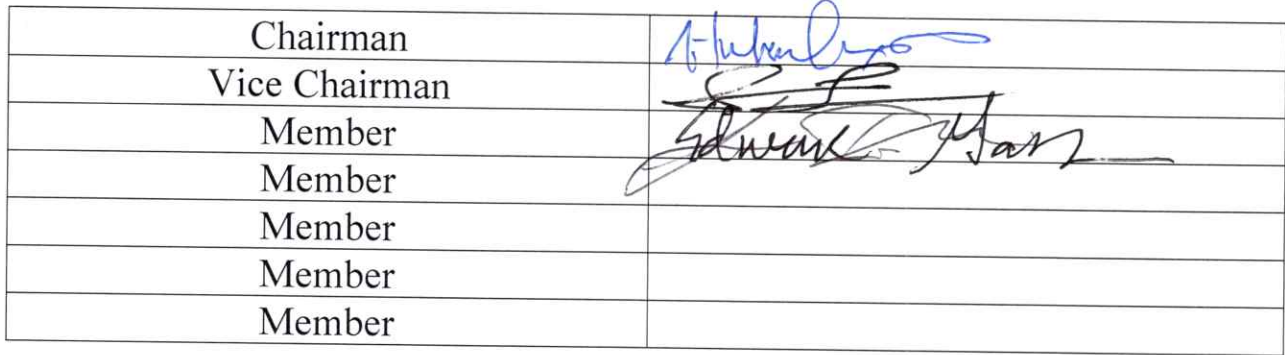 Chairman
Vice Chairman
Member
Member
Member
Member
Member